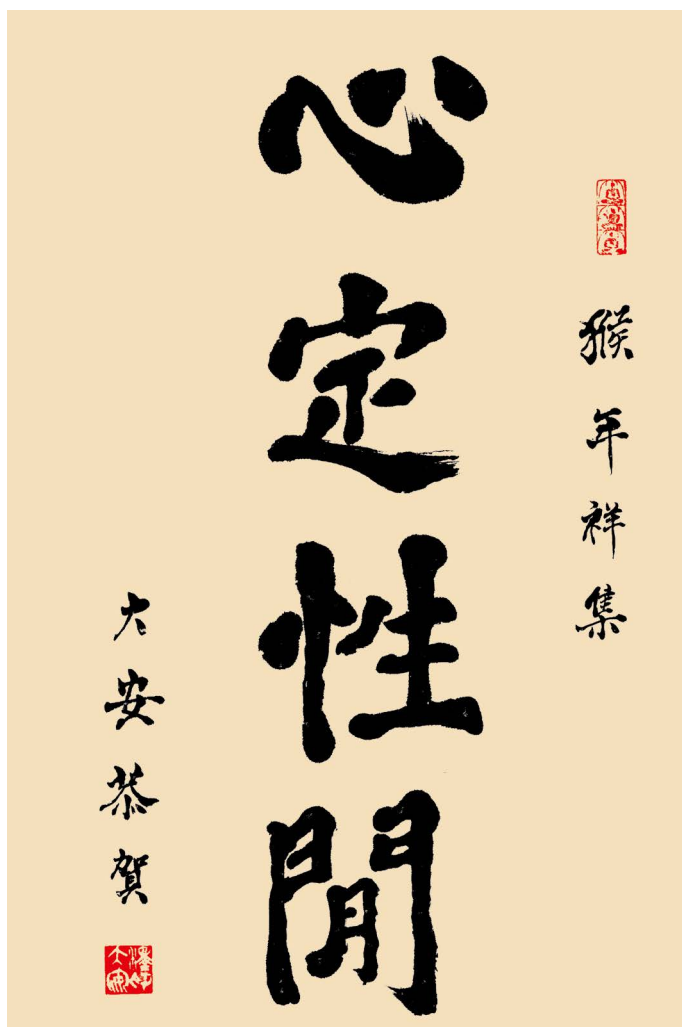 猴年祥集
心定性閒
大安恭賀